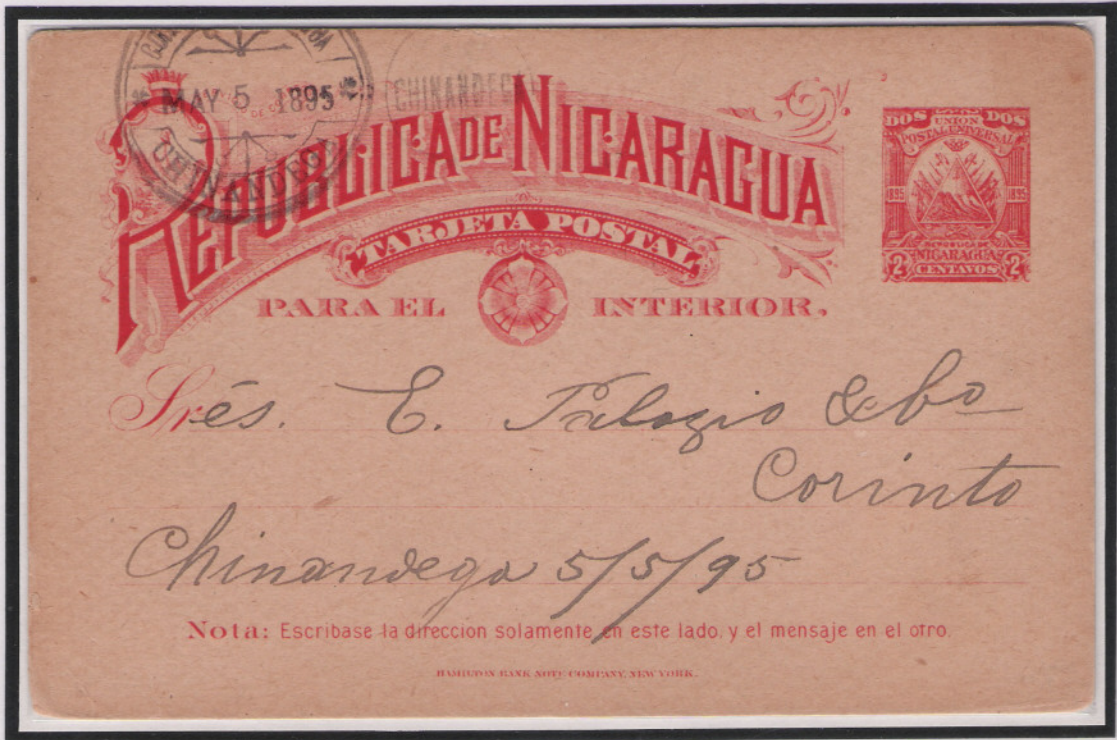 MAY 5 1895
CHINANDEGA
CHINANDEGA
REPUBLICA DE NICARAGUA
TARJETA POSTAL
PARA EL INTERIOR.
DOS DOS
UNION
POSTAL UNIVERSAL
1895 1895
REPUBLICA DE
NICARAGUA
2 CENTAVOS 2
Srés. E. Palazio & Co
Corinto
Chinandega 5/5/95
Nota: Escribase la direccion solamente en este lado. y el mensaje en el otro.
HAMILTON BANK NOTE COMPANY, NEW YORK.